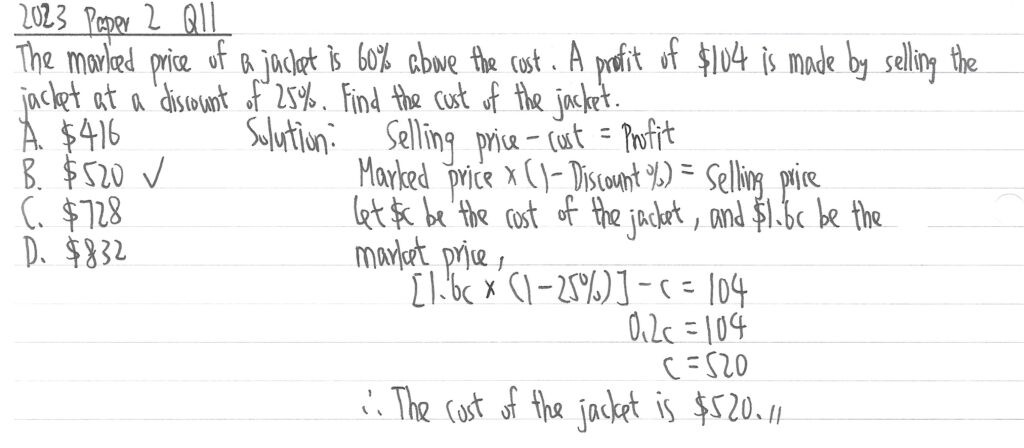 2023 Paper 2 Q11
The marked price of a jacket is 60% above the cost. A profit of $104 is made by selling the
jacket at a discount of 25%. Find the cost of the jacket.
A. $416 Solution: Selling price - cost = Profit
B. $520 ✓ Marked price × (1 - Discount %) = Selling price
C. $728 Let $c be the cost of the jacket, and $1.6c be the
D. $832 market price,
[1.6c × (1 - 25%)] - c = 104
0.2c = 104
c = 520
∴ The cost of the jacket is $520.//